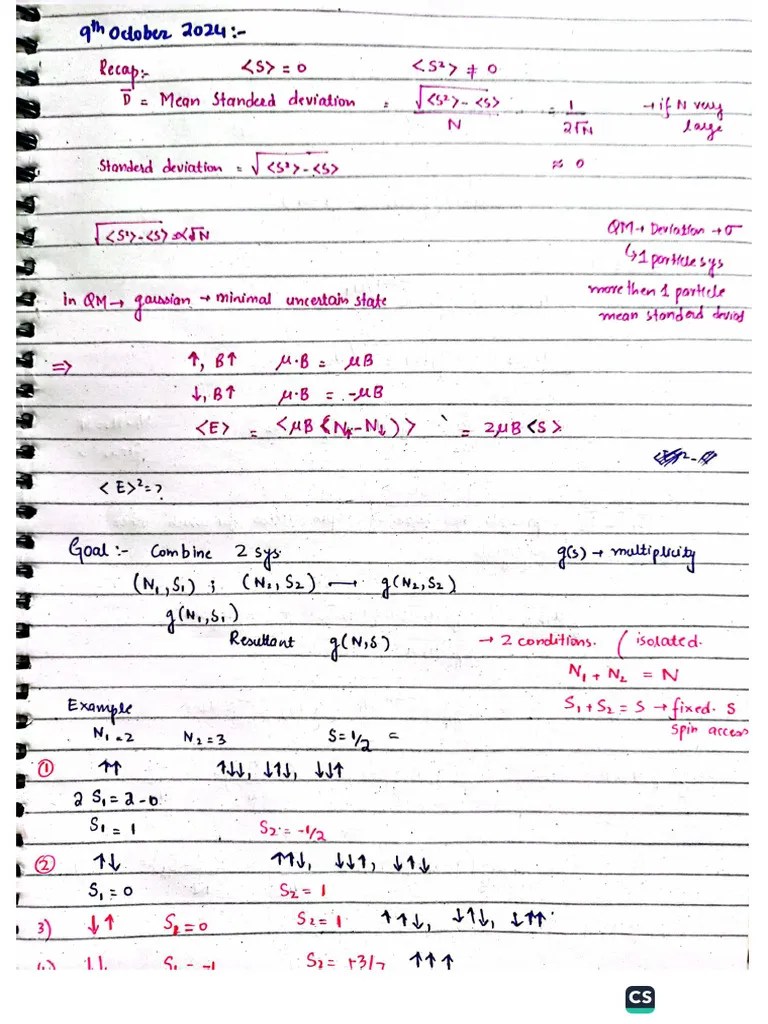 9th October 2024:-
Recap:- <S> = 0 <S²> ≠ 0
D̄ = Mean Standerd deviation = √<S²> - <S> / N = 1 / 2√N → if N very large
Standerd deviation = √<S²> - <S> ≈ 0
√<S²> - <S> ∝ √N
QM → Deviation → σ
↳ 1 particle sys
in QM → gaussian → minimal uncertain state
more then 1 particle
mean standerd deviod
⇒ ↑, B↑ μ·B = μB
↓, B↑ μ·B = -μB
<E> = <μB (N↑-N↓)> = 2μB <S>
<E>² = ?
Goal :- Combine 2 sys. g(s) → multiplicity
(N₁, S₁) ; (N₂, S₂) → g(N₂, S₂)
g(N₁, S₁)
Resultant g(N, S) → 2 conditions. ( isolated.
N₁ + N₂ = N
S₁ + S₂ = S → fixed. S
Spin access
Example
N₁ = 2 N₂ = 3 S = 1/2 =
① ↑↑ ↑↓↓, ↓↑↓, ↓↓↑
2 S₁ = 2 - 0
S₁ = 1 S₂ = -1/2
② ↑↓ ↑↑↓, ↓↓↑, ↓↑↓
S₁ = 0 S₂ = 1
3) ↓↑ S₂ = 0 S₂ = 1 ↑↑↓, ↓↑↓, ↓↑↑
↓↓ S₁ = -1 S₂ = +3/2 ↑↑↑
CS